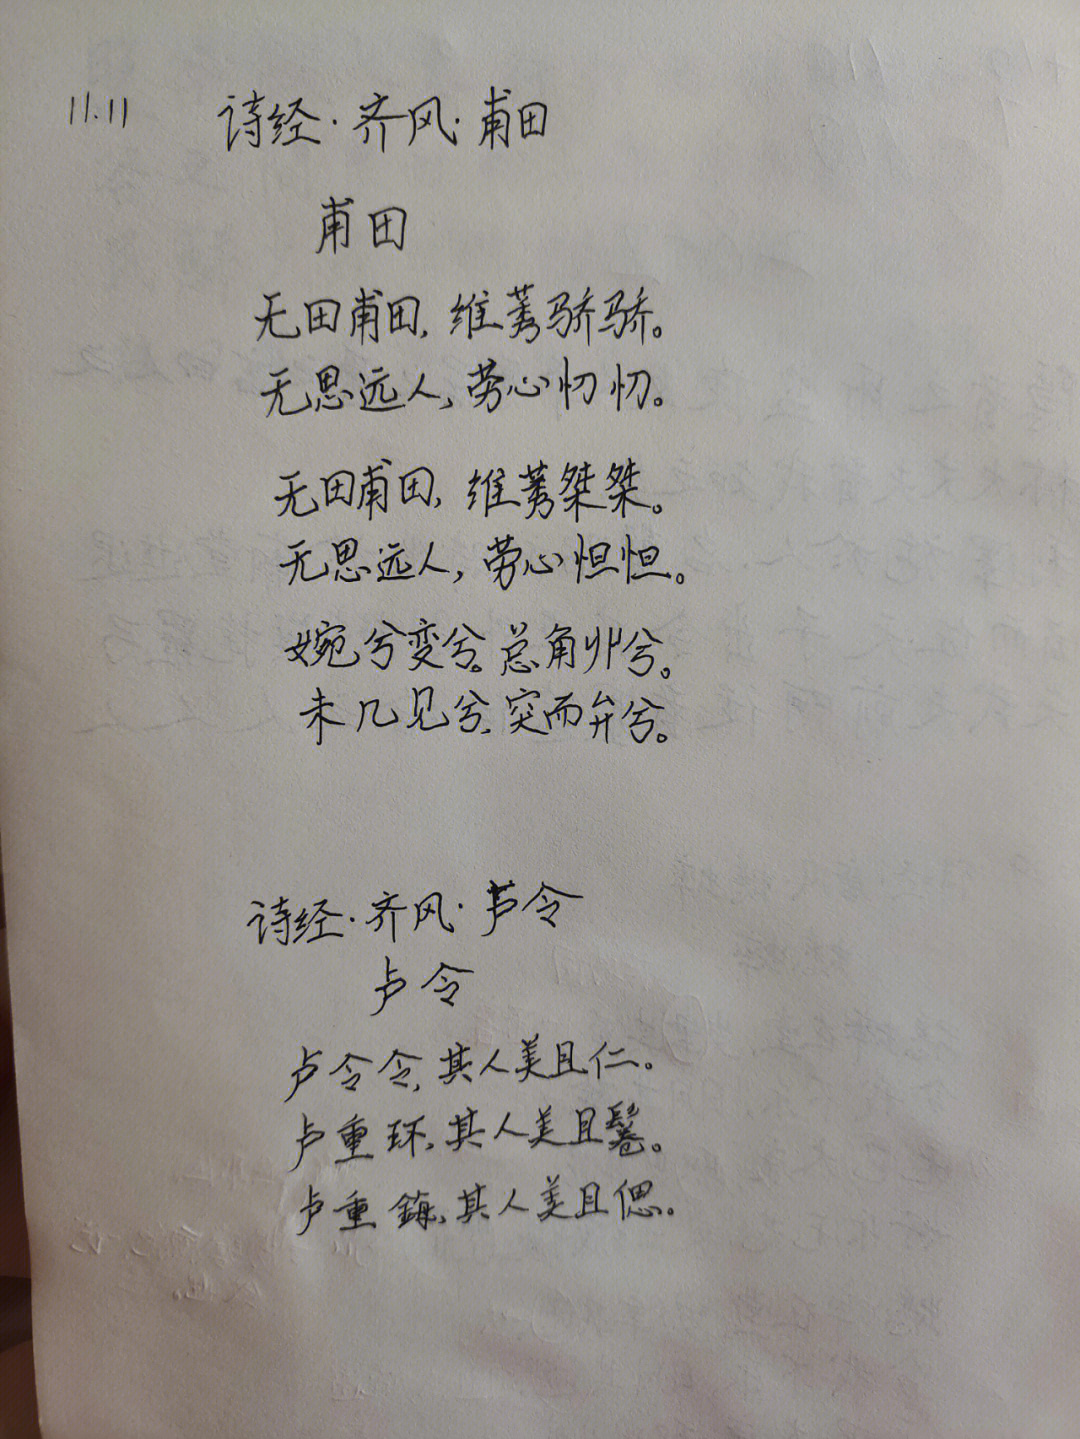 11.11
诗经·齐风·甫田
甫田
无田甫田,维莠骄骄。
无思远人,劳心忉忉。
无田甫田,维莠桀桀。
无思远人,劳心怛怛。
婉兮娈兮。总角丱兮。
未几见兮,突而弁兮。
诗经·齐风·芦令
卢令
卢令令,其人美且仁。
卢重环,其人美且鬈。
卢重鋂,其人美且偲。